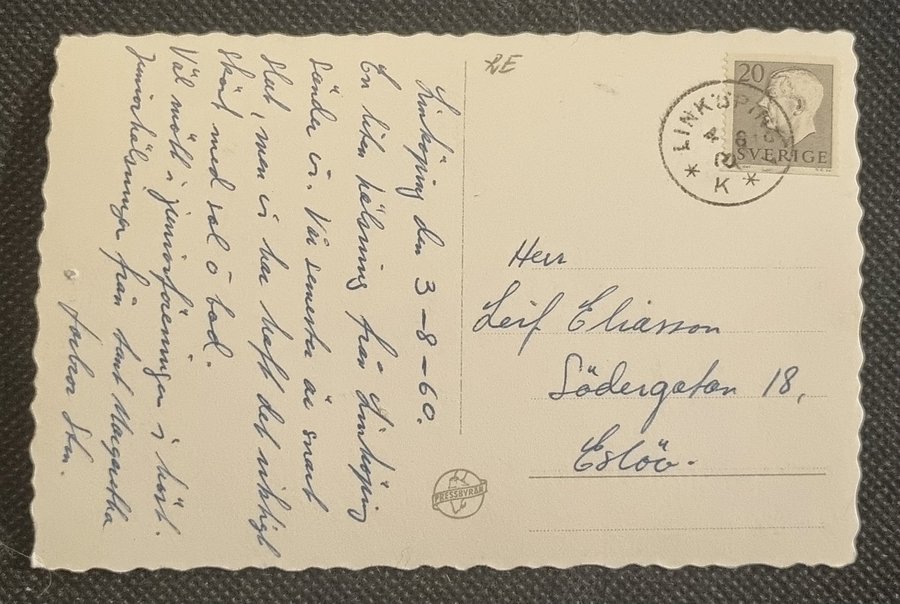 Linköping den 3-8-60.
En liten hälsning från Linköping
sänder vi. Vår semester är snart
slut, men vi har haft det riktigt
skönt med sol o bad.
Väl mött i juniorföreningen i höst.
Juniorhälsningar från tant Margaretha
farbror Sten.
RE
20
SVERIGE
LINKÖPING
4 8
60
K
Herr
Leif Eliasson
Södergatan 18,
Eslöv.
PRESSBYRÅN